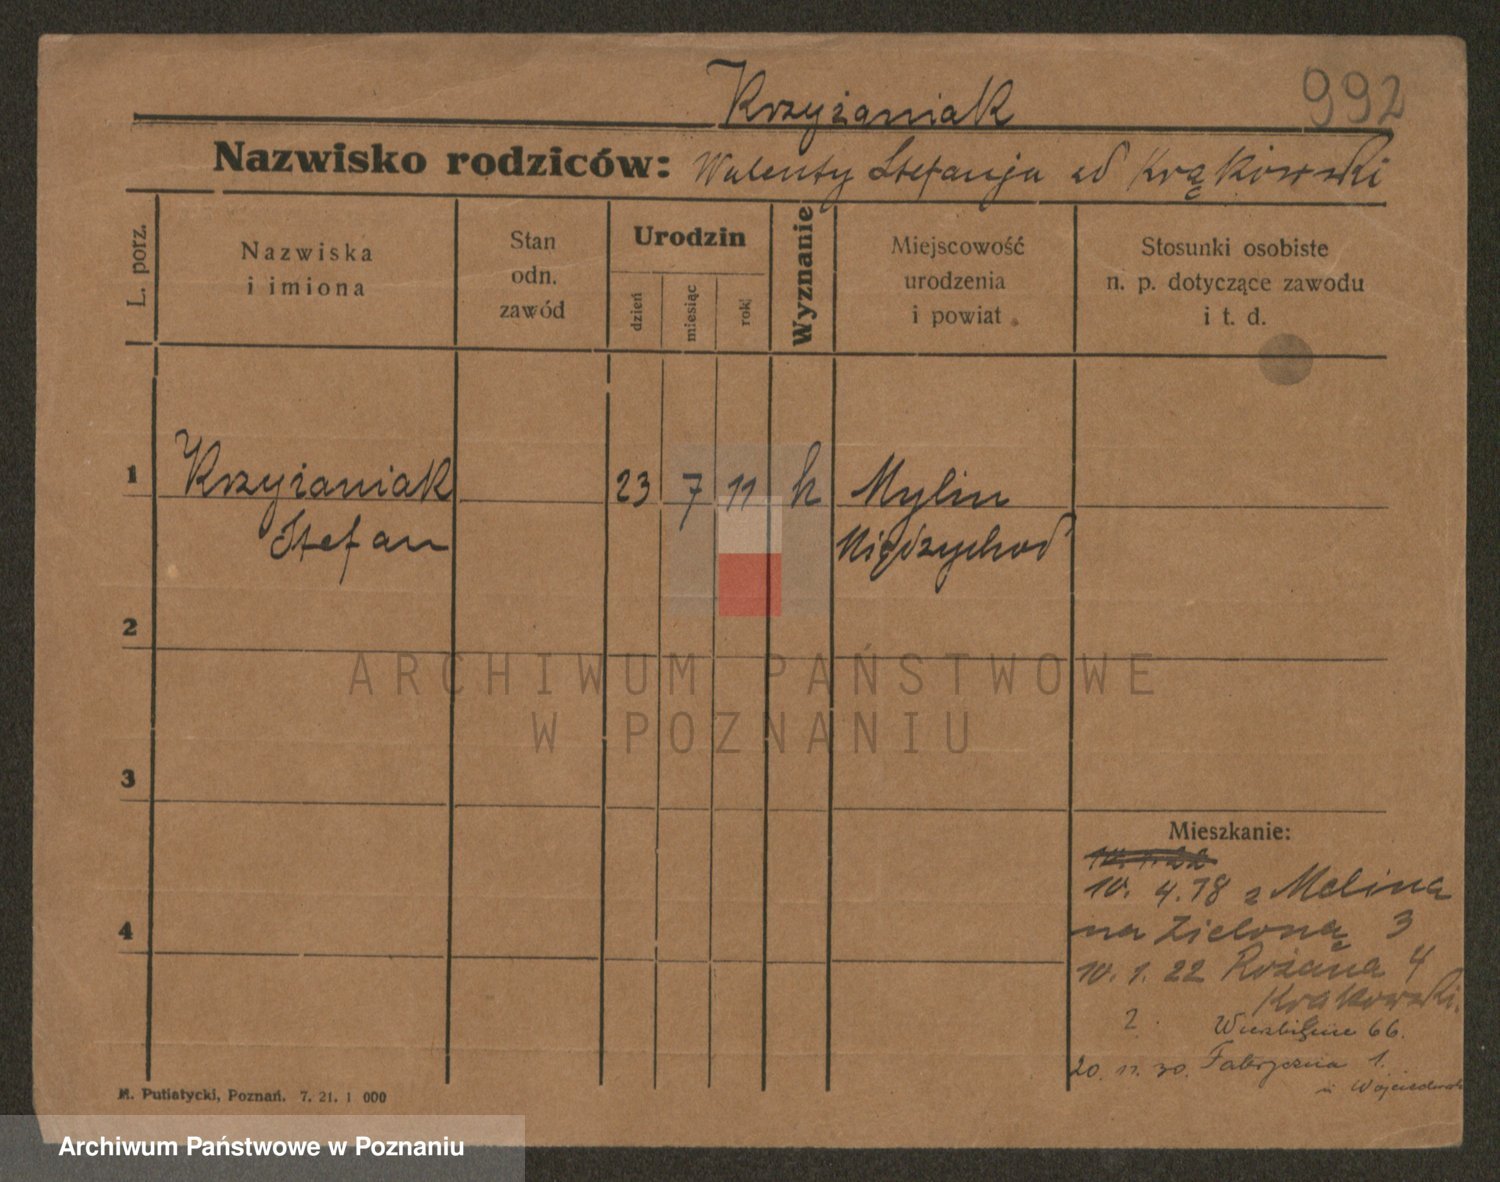 992
Krzyżaniak
Nazwisko rodziców: Walenty Stefanja od Krąkowski
L. porz.
Nazwiska
i imiona
Stan
odn.
zawód
Urodzin
dzień
miesiąc
rok
Wyznanie
Miejscowość
urodzenia
i powiat
Stosunki osobiste
n. p. dotyczące zawodu
i t. d.
1 Krzyżaniak 23 7 11 k Mylin
Stefan Międzychod
2
ARCHIWUM PAŃSTWOWE
W POZNANIU
3
Mieszkanie:
10. 1. 22
10. 4. 18 z Melina
4
na Zieloną 3
10. 1. 22 Rożana 4
Krakowski.
2. 66.
20. 11. 30. Fabryczna 1.
M. Putiatycki, Poznań. 7. 21. 1 000
Archiwum Państwowe w Poznaniu